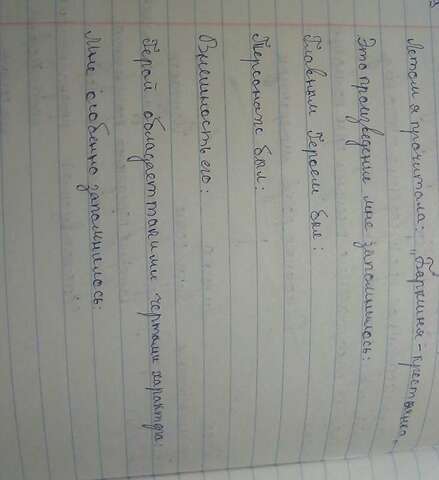 Летом я прочитала: „Барышня-крестьянка"
Это произведение мне запомнилось:
Главным Героем был:
Персонаж был:
Внешность его:
Герой обладает такими чертами характера:
Мне особенно запомнилось: